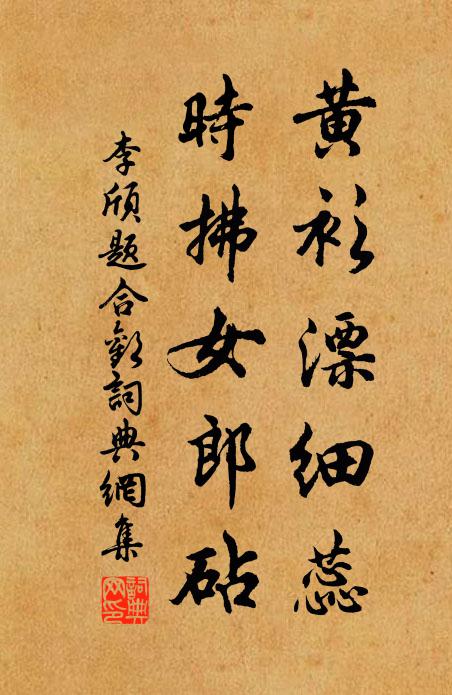 黃衫漂細蕊
時拂女郎砧
李頎題合歡詞典網集
詞典网印